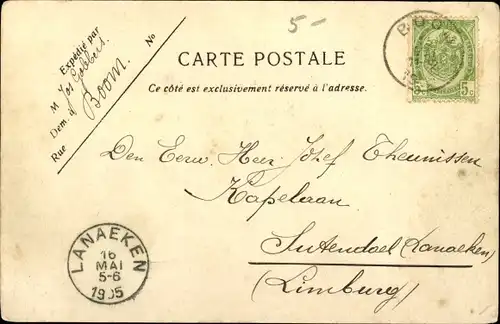 5-
Expédié par
M Jos Gobbers.
Dem. à Boom.
Rue
No
CARTE POSTALE
Ce côté est exclusivement réservé à l'adresse.
5c 5c
Den Eerw. Heer Jozef Theunissen
Kapelaan
Sutendael (Lanaeken)
(Limburg)
LANAEKEN
16
MAI
5-6
1905